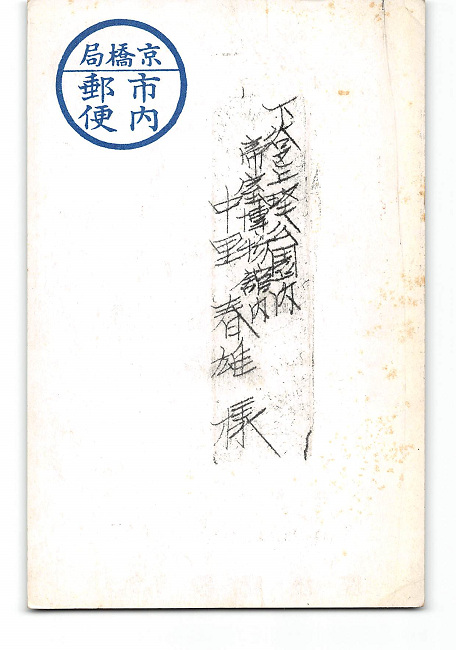 京橋局
市内
郵便
下谷区上野公園内
帝室博物館内
中里 春雄 様